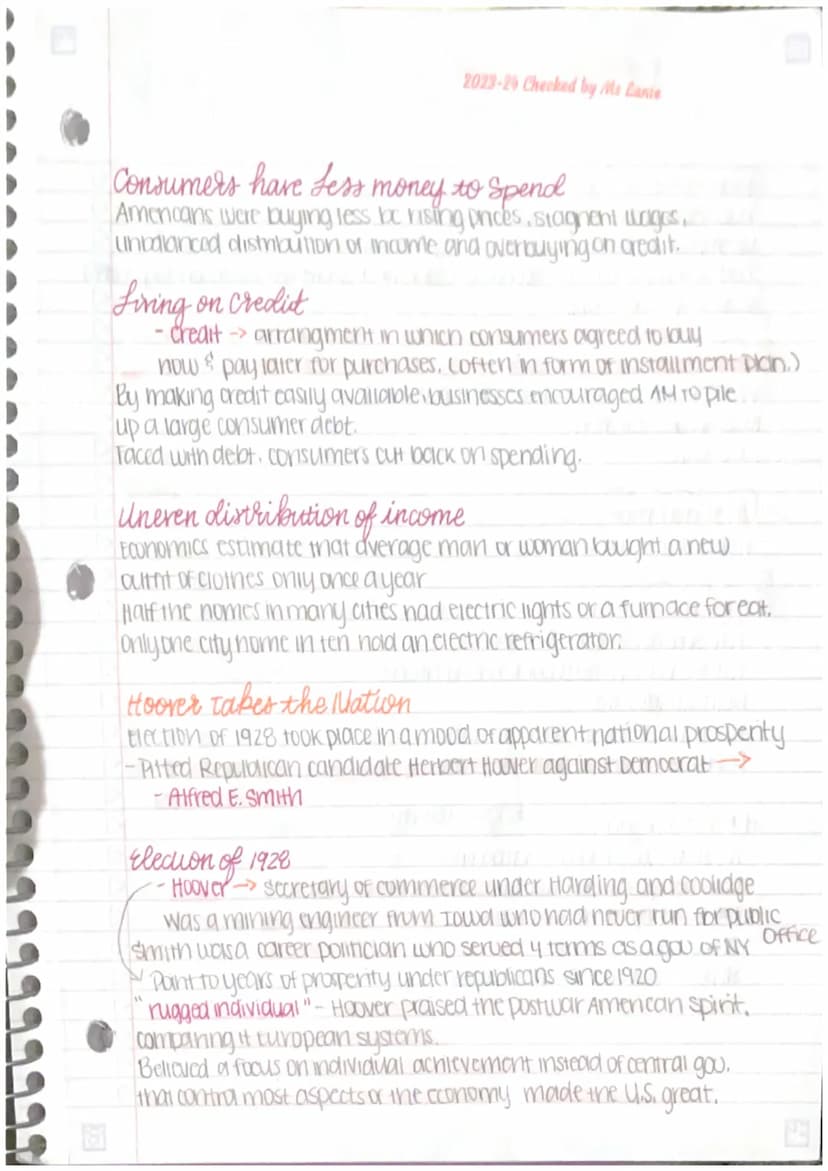 2023-24 Checked by Ms
Consumers have Less money to Spend
Americans were buying less bc rising prices, stagnent wages,
unbalanced distribution of income, and overbuying on credit.
Living on Credit
- Credit → arrangment in which consumers agreed to buy
now & pay later for purchases. (often in form of installment plan.)
By making credit easily available, businesses encouraged AM to pile
up a large consumer debt.
Faced with debt, consumers cut back on spending.
Uneven distribution of income
Economics estimate that average man or woman bought a new
outfit of clothes only once a year
Half the homes in many cities had electric lights or a furnace for eat.
Only one city home in ten hold an electric refrigerator.
Hoover Takes the Nation
Election of 1928 took place in a mood of apparent national prosperity
- Pitted Republican candidate Herbert Hoover against Democrat →
- Alfred E. Smith
Election of 1928
- Hoover → Secretary of commerce under Harding and Coolidge
Was a mining engineer from Iowa who had never run for public
Office
Smith was a career politician who served 4 terms as a gov of NY
Point to years of prosperity under republicans since 1920
"rugged individual" - Hoover praised the postwar American spirit,
comparing it European systems.
Believed a focus on individual achievement instead of central gov.
that control most aspects of the economy made the U.S. great.